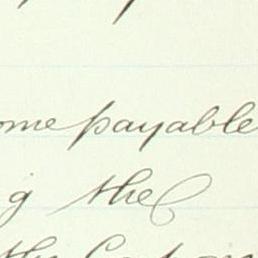 ome payable
g the
the